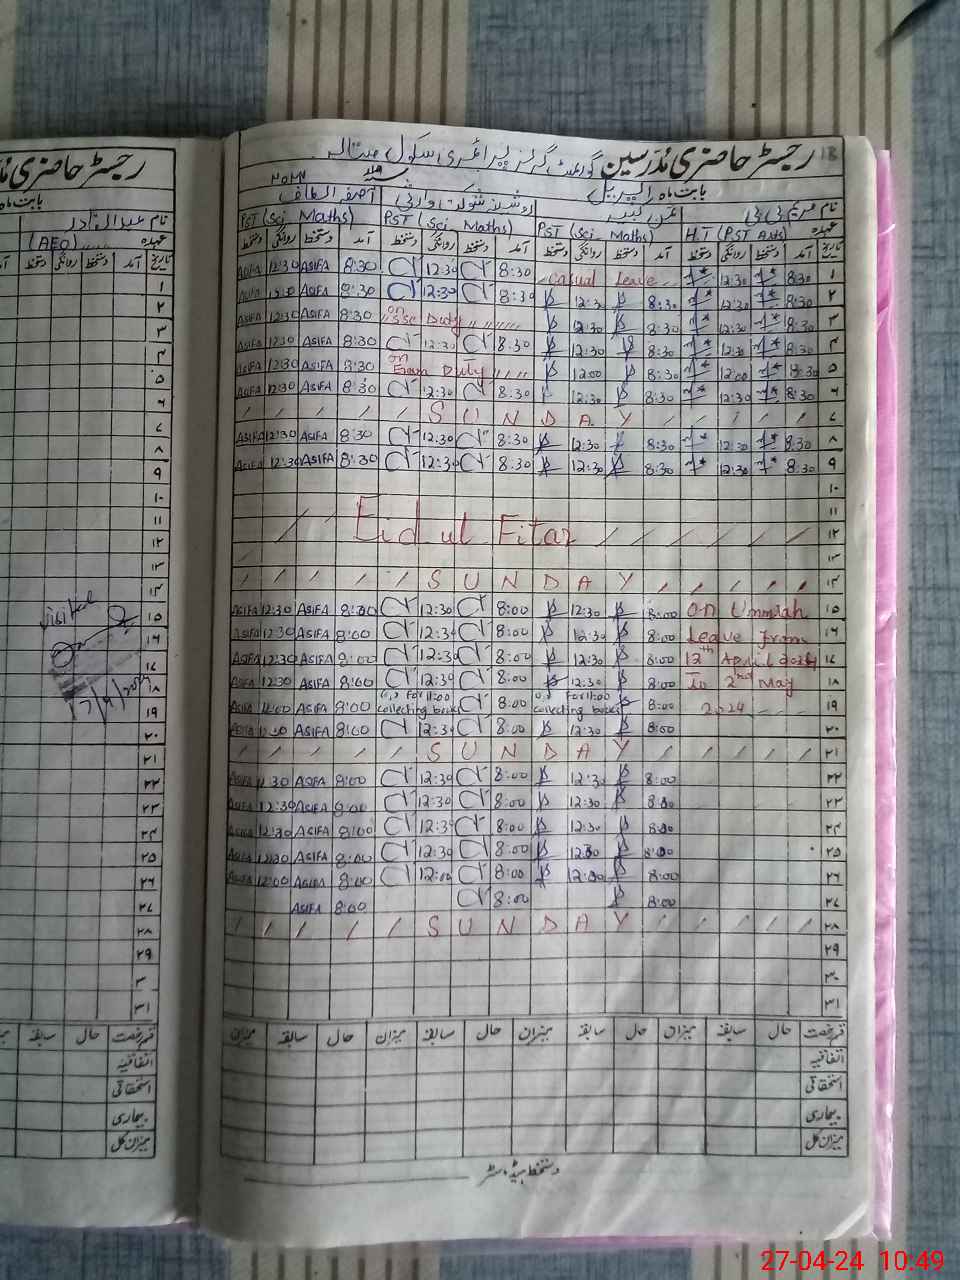 رجسٹر حاضری مدرسین گورنمنٹ گرلز پرائمری سکول
18
بابت ماہ اپریل
نام مریم بی بی
روشن شوکت وارثی
آصفہ الطاف
عہدہ H.T (PST Arts) PST (Sci Maths) PST (Sci Maths) PST (Sci Maths)
تاریخ آمد دستخط روانگی دستخط آمد دستخط روانگی دستخط آمد دستخط روانگی دستخط آمد دستخط روانگی دستخط
ASIFA 12:30 ASIFA 8:30 12:30 8:30 Casual Leave 12:30 8:30 ۱
12:30 ASIFA 8:30 12:30 8:30 12:30 8:30 12:30 8:30 ۲
ASIFA 12:30 ASIFA 8:30 on SSC Duty 12:30 8:30 12:30 8:30 ۳
ASIFA 12:30 ASIFA 8:30 12:30 8:30 12:30 8:30 12:30 8:30 ۴
ASIFA 12:30 ASIFA 8:30 on Exam Duty 12:00 8:30 12:00 8:30 ۵
ASIFA 12:30 ASIFA 8:30 12:30 8:30 12:30 8:30 12:30 8:30 ۶
SUNDAY ۷
ASIFA 12:30 ASIFA 8:30 12:30 8:30 12:30 8:30 12:30 8:30 ۸
ASIFA 12:30 ASIFA 8:30 12:30 8:30 12:30 8:30 12:30 8:30 ۹
۱۰
۱۱
Eid ul Fitar ۱۲
۱۳
SUNDAY ۱۴
ASIFA 12:30 ASIFA 8:00 12:30 8:00 12:30 8:00 on Ummrah ۱۵
ASIFA 12:30 ASIFA 8:00 12:30 8:00 12:30 8:00 Leave from ۱۶
ASIFA 12:30 ASIFA 8:00 12:30 8:00 12:30 8:00 12th April 2024 ۱۷
ASIFA 12:30 ASIFA 8:00 12:30 8:00 12:30 8:00 To 2nd May ۱۸
ASIFA 11:00 ASIFA 8:00 For 11:00 collecting books 8:00 For 11:00 collecting books 8:00 2024 ۱۹
ASIFA ASIFA 8:00 12:30 8:00 12:30 8:00 ۲۰
SUNDAY ۲۱
ASIFA ASIFA 8:00 12:30 8:00 12:30 8:00 ۲۲
ASIFA 12:30 ASIFA 8:00 12:30 8:00 12:30 8:00 ۲۳
ASIFA 12:30 ASIFA 8:00 12:30 8:00 12:30 8:00 ۲۴
ASIFA 12:30 ASIFA 8:00 12:30 8:00 12:30 8:00 ۲۵
ASIFA 12:00 ASIFA 8:00 12:00 8:00 12:00 8:00 ۲۶
ASIFA 8:00 8:00 8:00 ۲۷
SUNDAY ۲۸
۲۹
۳۰
۳۱
قسم رخصت حال سابقہ میزان حال سابقہ میزان حال سابقہ میزان حال سابقہ میزان
اتفاقیہ
استحقاقی
بیماری
میزان کل
دستخط ہیڈ ماسٹر
رجسٹر حاضری
بابت ماہ
نام عبدالقادر
عہدہ (AEO)
تاریخ آمد دستخط روانگی دستخط
visited
قسم رخصت حال سابقہ
اتفاقیہ
استحقاقی
بیماری
میزان کل
27-04-24 10:49